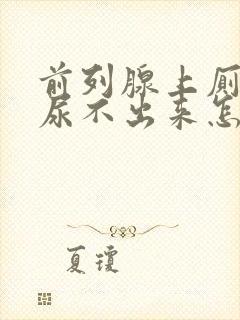 前列腺上厕
尿不出来怎
夏琼